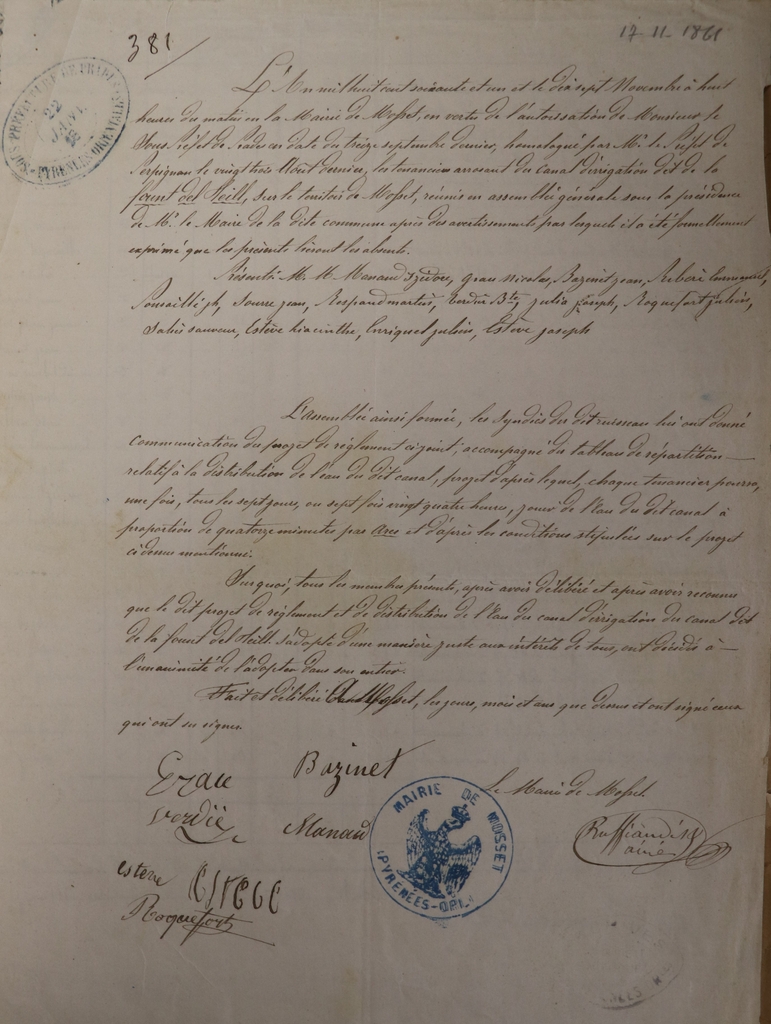 381
17-11-1861
SOUS PRÉFECTURE DE PRADES
22
JANV.
PYRÉNÉES ORIENTALES
L'An mil huit cent soixante et un et le dix sept Novembre à huit
heures du matin en la Mairie de Mosset, en vertu de l'autorisation de Monsieur le
Sous Préfet de Prades en date du treize septembre dernier, homologué par Mr. le Préfet de
Perpignan le vingt trois Août dernier, les tenanciers arrosant du Canal d'irrigation dit de la
fount del Teill, sur le territoire de Mosset, réunis en assemblée générale sous la présidence
de Mr. le Maire de la dite commune après des avertissements par lesquels il a été formellement
exprimé que les présents lieront les absents.
Présents M. M. Manaud Izidore, Grau Nicolas, Bazinet jean, Ribère Emmanuel,
Pomailli jh, Sourre jean, Respaud martin, Verdié Bte, Julia joseph, Roquefort julien,
Salies sauveur, Estève hiacinthe, Enriquel julien, Estève joseph
L'assemblée ainsi formée, les Syndics du dit ruisseau lui ont donné
communication du projet de réglement ci joint, accompagné du tableau de répartition
relatif à la distribution de l'eau du dit canal, projet d'après lequel, chaque tenancier pourra,
une fois, tous les sept jours, ou sept fois vingt quatre heures, jouir de l'eau du dit canal à
proportion de quatorze minutes par Are et d'après les conditions stipulées sur le projet
ci dessus mentionné.
Sur quoi, tous les membres présents, après avoir délibéré et après avoir reconnu
que le dit projet de réglement et de distribution de l'eau du canal d'irrigation du canal dit
de la fount del Teill s'adapte d'une manière juste aux intérêts de tous, ont décidé à
l'unanimité de l'adopter dans son entier.
Fait et délibéré à Mosset, les jours, mois et ans que dessus et ont signé ceux
qui ont su signer.
Grau
Bazinet
Le Maire de Mosset
Verdié
Manaud
Ruffiandis
ainé
MAIRIE DE MOSSET
(PYRÉNÉES-ORLES)
esteve
ESTEVE
Roquefort